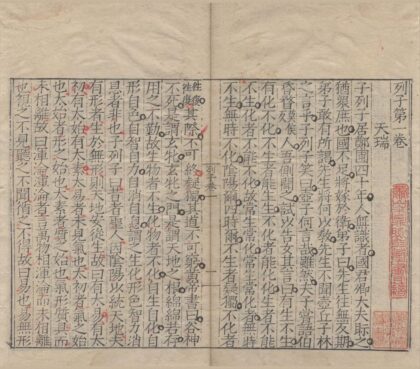 列子第一卷
天瑞
子列子居鄭圃四十年人無識者國君卿大夫眎之
猶衆庶也國不足將嫁於衛弟子曰先生往無反期
弟子敢有所謁先生將何以教先生不聞壺丘子林
之言乎子列子笑曰壺子何言哉雖然夫子嘗語伯
昏瞀人吾側聞之試以告女其言曰有生不生
有化不化不生者能生生不化者能化化生者不能
不生化者不能不化故常生常化常生常化者無時
不生無時不化陰陽爾四時爾不生者疑獨不化者
往復往復其際不可終疑獨其道不可窮黃帝書曰谷神
不死是謂玄牝玄牝之門是謂天地之根綿綿若存
用之不勤故生物者不生化物者不化自生自化自
形自色自智自力自消自息謂之生化形色智力消
息者非也子列子曰昔者聖人因陰陽以統天地夫
有形者生於無形則天地安從生故曰有太易有太
初有太始有太素太易者未見氣也太初者氣之始
也太始者形之始也太素者質之始也氣形質具而
未相離故曰渾淪渾淪者言萬物相渾淪而未相離
也視之不見聽之不聞循之不得故曰易也易無形